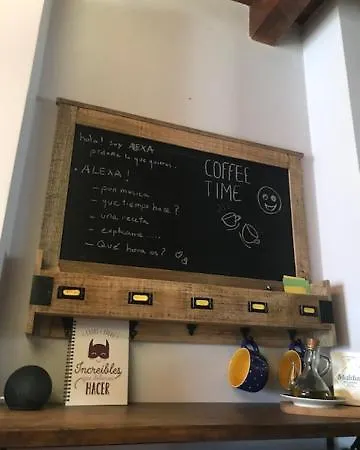 hola! soy ALEXA
pídeme lo que quieras...
• ALEXA!
- pon musica
- que tiempo hace?
- una receta
- explicame....
- Qué hora es?
COFFEE
TIME
Increíbles
HACER